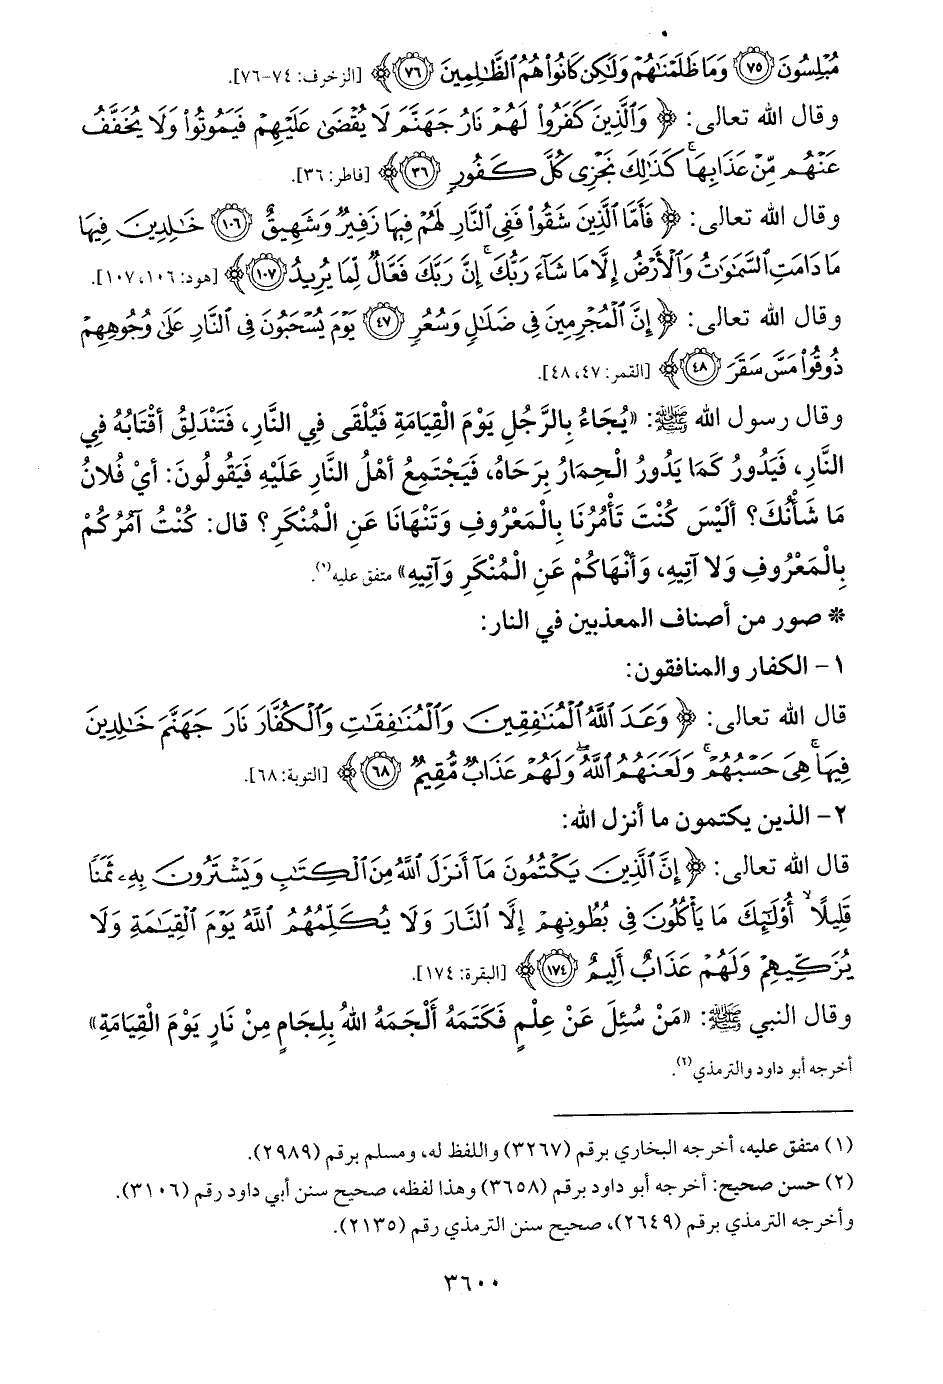 مُبْلِسُونَ ﴿٧٥﴾ وَمَا ظَلَمْنَٰهُمْ وَلَٰكِن كَانُوا۟ هُمُ ٱلظَّٰلِمِينَ ﴿٧٦﴾ ﴾ [الزخرف: ٧٤-٧٦].
وقال الله تعالى: ﴿ وَٱلَّذِينَ كَفَرُوا۟ لَهُمْ نَارُ جَهَنَّمَ لَا يُقْضَىٰ عَلَيْهِمْ فَيَمُوتُوا۟ وَلَا يُخَفَّفُ
عَنْهُم مِّنْ عَذَابِهَا ۚ كَذَٰلِكَ نَجْزِى كُلَّ كَفُورٍ ﴿٣٦﴾ ﴾ [فاطر: ٣٦].
وقال الله تعالى: ﴿ فَأَمَّا ٱلَّذِينَ شَقُوا۟ فَفِى ٱلنَّارِ لَهُمْ فِيهَا زَفِيرٌ وَشَهِيقٌ ﴿١٠٦﴾ خَٰلِدِينَ فِيهَا
مَا دَامَتِ ٱلسَّمَٰوَٰتُ وَٱلْأَرْضُ إِلَّا مَا شَآءَ رَبُّكَ ۚ إِنَّ رَبَّكَ فَعَّالٌ لِّمَا يُرِيدُ ﴿١٠٧﴾ ﴾ [هود: ١٠٦، ١٠٧].
وقال الله تعالى: ﴿ إِنَّ ٱلْمُجْرِمِينَ فِى ضَلَٰلٍ وَسُعُرٍ ﴿٤٧﴾ يَوْمَ يُسْحَبُونَ فِى ٱلنَّارِ عَلَىٰ وُجُوهِهِمْ
ذُوقُوا۟ مَسَّ سَقَرَ ﴿٤٨﴾ ﴾ [القمر: ٤٧، ٤٨].
وقال رسول الله ﷺ: «يُجَاءُ بِالرَّجُلِ يَوْمَ الْقِيَامَةِ فَيُلْقَى فِي النَّارِ، فَتَنْدَلِقُ أقْتَابُهُ فِي
النَّارِ، فَيَدُورُ كَمَا يَدُورُ الْحِمَارُ بِرَحَاهُ، فَيَجْتَمِعُ أهْلُ النَّارِ عَلَيْهِ فَيَقُولُونَ: أيْ فُلانُ
مَا شَأْنُكَ؟ ألَيْسَ كُنْتَ تَأْمُرُنَا بِالْمَعْرُوفِ وَتَنْهَانَا عَنِ الْمُنْكَرِ؟ قال: كُنْتُ آمُرُكُمْ
بِالْمَعْرُوفِ وَلا آتِيهِ، وَأنْهَاكُمْ عَنِ الْمُنْكَرِ وَآتِيهِ» متفق عليه(١).
* صور من أصناف المعذبين في النار:
١- الكفار والمنافقون:
قال الله تعالى: ﴿ وَعَدَ ٱللَّهُ ٱلْمُنَٰفِقِينَ وَٱلْمُنَٰفِقَٰتِ وَٱلْكُفَّارَ نَارَ جَهَنَّمَ خَٰلِدِينَ
فِيهَا ۚ هِىَ حَسْبُهُمْ ۚ وَلَعَنَهُمُ ٱللَّهُ ۖ وَلَهُمْ عَذَابٌ مُّقِيمٌ ﴿٦٨﴾ ﴾ [التوبة: ٦٨].
٢- الذين يكتمون ما أنزل الله:
قال الله تعالى: ﴿ إِنَّ ٱلَّذِينَ يَكْتُمُونَ مَآ أَنزَلَ ٱللَّهُ مِنَ ٱلْكِتَٰبِ وَيَشْتَرُونَ بِهِۦ ثَمَنًا
قَلِيلًا ۙ أُو۟لَٰٓئِكَ مَا يَأْكُلُونَ فِى بُطُونِهِمْ إِلَّا ٱلنَّارَ وَلَا يُكَلِّمُهُمُ ٱللَّهُ يَوْمَ ٱلْقِيَٰمَةِ وَلَا
يُزَكِّيهِمْ وَلَهُمْ عَذَابٌ أَلِيمٌ ﴿١٧٤﴾ ﴾ [البقرة: ١٧٤].
وقال النبي ﷺ: «مَنْ سُئِلَ عَنْ عِلْمٍ فَكَتَمَهُ ألْجَمَهُ اللهُ بِلِجَامٍ مِنْ نَارٍ يَوْمَ الْقِيَامَةِ»
أخرجه أبو داود والترمذي(٢).
(١) متفق عليه، أخرجه البخاري برقم (٣٢٦٧) واللفظ له، ومسلم برقم (٢٩٨٩).
(٢) حسن صحيح: أخرجه أبو داود برقم (٣٦٥٨) وهذا لفظه، صحيح سنن أبي داود رقم (٣١٠٦).
وأخرجه الترمذي برقم (٢٦٤٩)، صحيح سنن الترمذي رقم (٢١٣٥).
٣٦٠٠